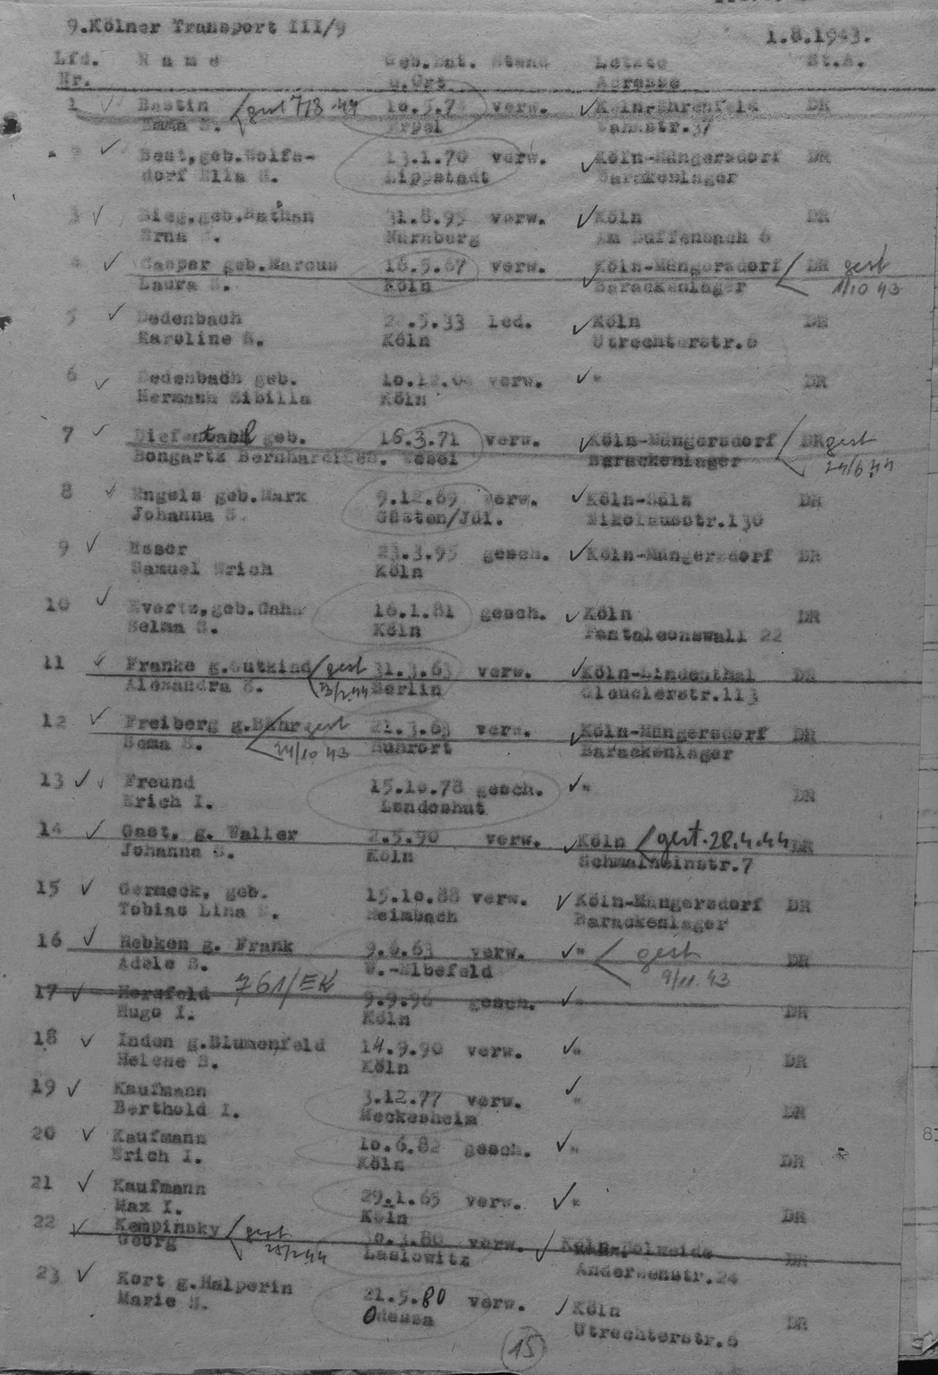 9.Kölner Transport III/9 1.8.1943.
Lfd. Name Geb.Dat. Stand Letzte St.A.
Nr. u.Ort Adresse
1 Bastin gest 7/3 44 verw. Köln-Ehrenfeld DR
Emma S. Erpel str.37
Best,geb.Wolfs- 13.1.70 verw. Köln-Müngersdorf DR
dorf Ella S. Lippstadt Barackenlager
3 Sieg,geb.Nathan 31.8.95 verw. Köln DR
Erna S. Nürnberg Am Duffesbach 6
4 Caspar geb.Marcus 16.5.67 verw. Köln-Müngersdorf DR gest
Laura S. Köln Barackenlager 1/10 43
5 Dedenbach .5.33 led. Köln DR
Karoline S. Köln Utrechterstr.6
6 Dedenbach geb. verw. " DR
Hermann Sibilla Köln
7 Diefentahl geb. 16.3.71 verw. Köln-Müngersdorf DR gest
Bongartz Bernhardine S. Wesel Barackenlager 24/6 44
8 Engels geb.Marx 9.12.69 verw. Köln-Sülz DR
Johanna S. Güsten/Jül. Nikolausstr.130
9 Esser 23.3.95 gesch. Köln-Müngersdorf DR
Samuel Erich Köln
10 Evertz,geb.Cahn 16.1.81 gesch. Köln DR
Selma S. Köln Pantaleonswall 22
11 Franke g.Gutkind gest 31.3.63 verw. Köln-Lindenthal DR
Alexandra S. Berlin Gleuelerstr.113
12 Freiberg g.Bähr gest 21.3.63 verw. Köln-Müngersdorf DR
S. 24/10 43 Ruhrort Barackenlager
13 Freund 15.10.78 gesch. " DR
Erich I. Landeshut
14 Gast, g. Waller 2.5.90 verw. Köln gest.28.4.44 DR
Johanna S. Köln Schmalbeinstr.7
15 Germeck, geb. 15.10.88 verw. Köln-Müngersdorf DR
Tobias Lina S. Heimbach Barackenlager
16 Hebken g. Frank 9.6.63 verw. " gest DR
Adele S. W.-Elbefeld 9/11.43
17 Hersfeld 761/EK 9.9.96 gesch. " DR
Hugo I. Köln
18 Inden g.Blumenfeld 14.9.90 verw. " DR
Helene S. Köln
19 Kaufmann 3.12.77 verw. " DR
Berthold I. Meckesheim
20 Kaufmann 10.6.82 gesch. " DR
Erich I. Köln
21 Kaufmann 29.1.65 verw. " DR
Max I. Köln
22 Kempinsky gest 30.3.80 verw. Köln-Holweide DR
Georg Laslowitz Andersenstr.24
23 Kort g.Halperin 21.5.80 verw. Köln DR
Marie S. Odessa Utrechterstr.6
15